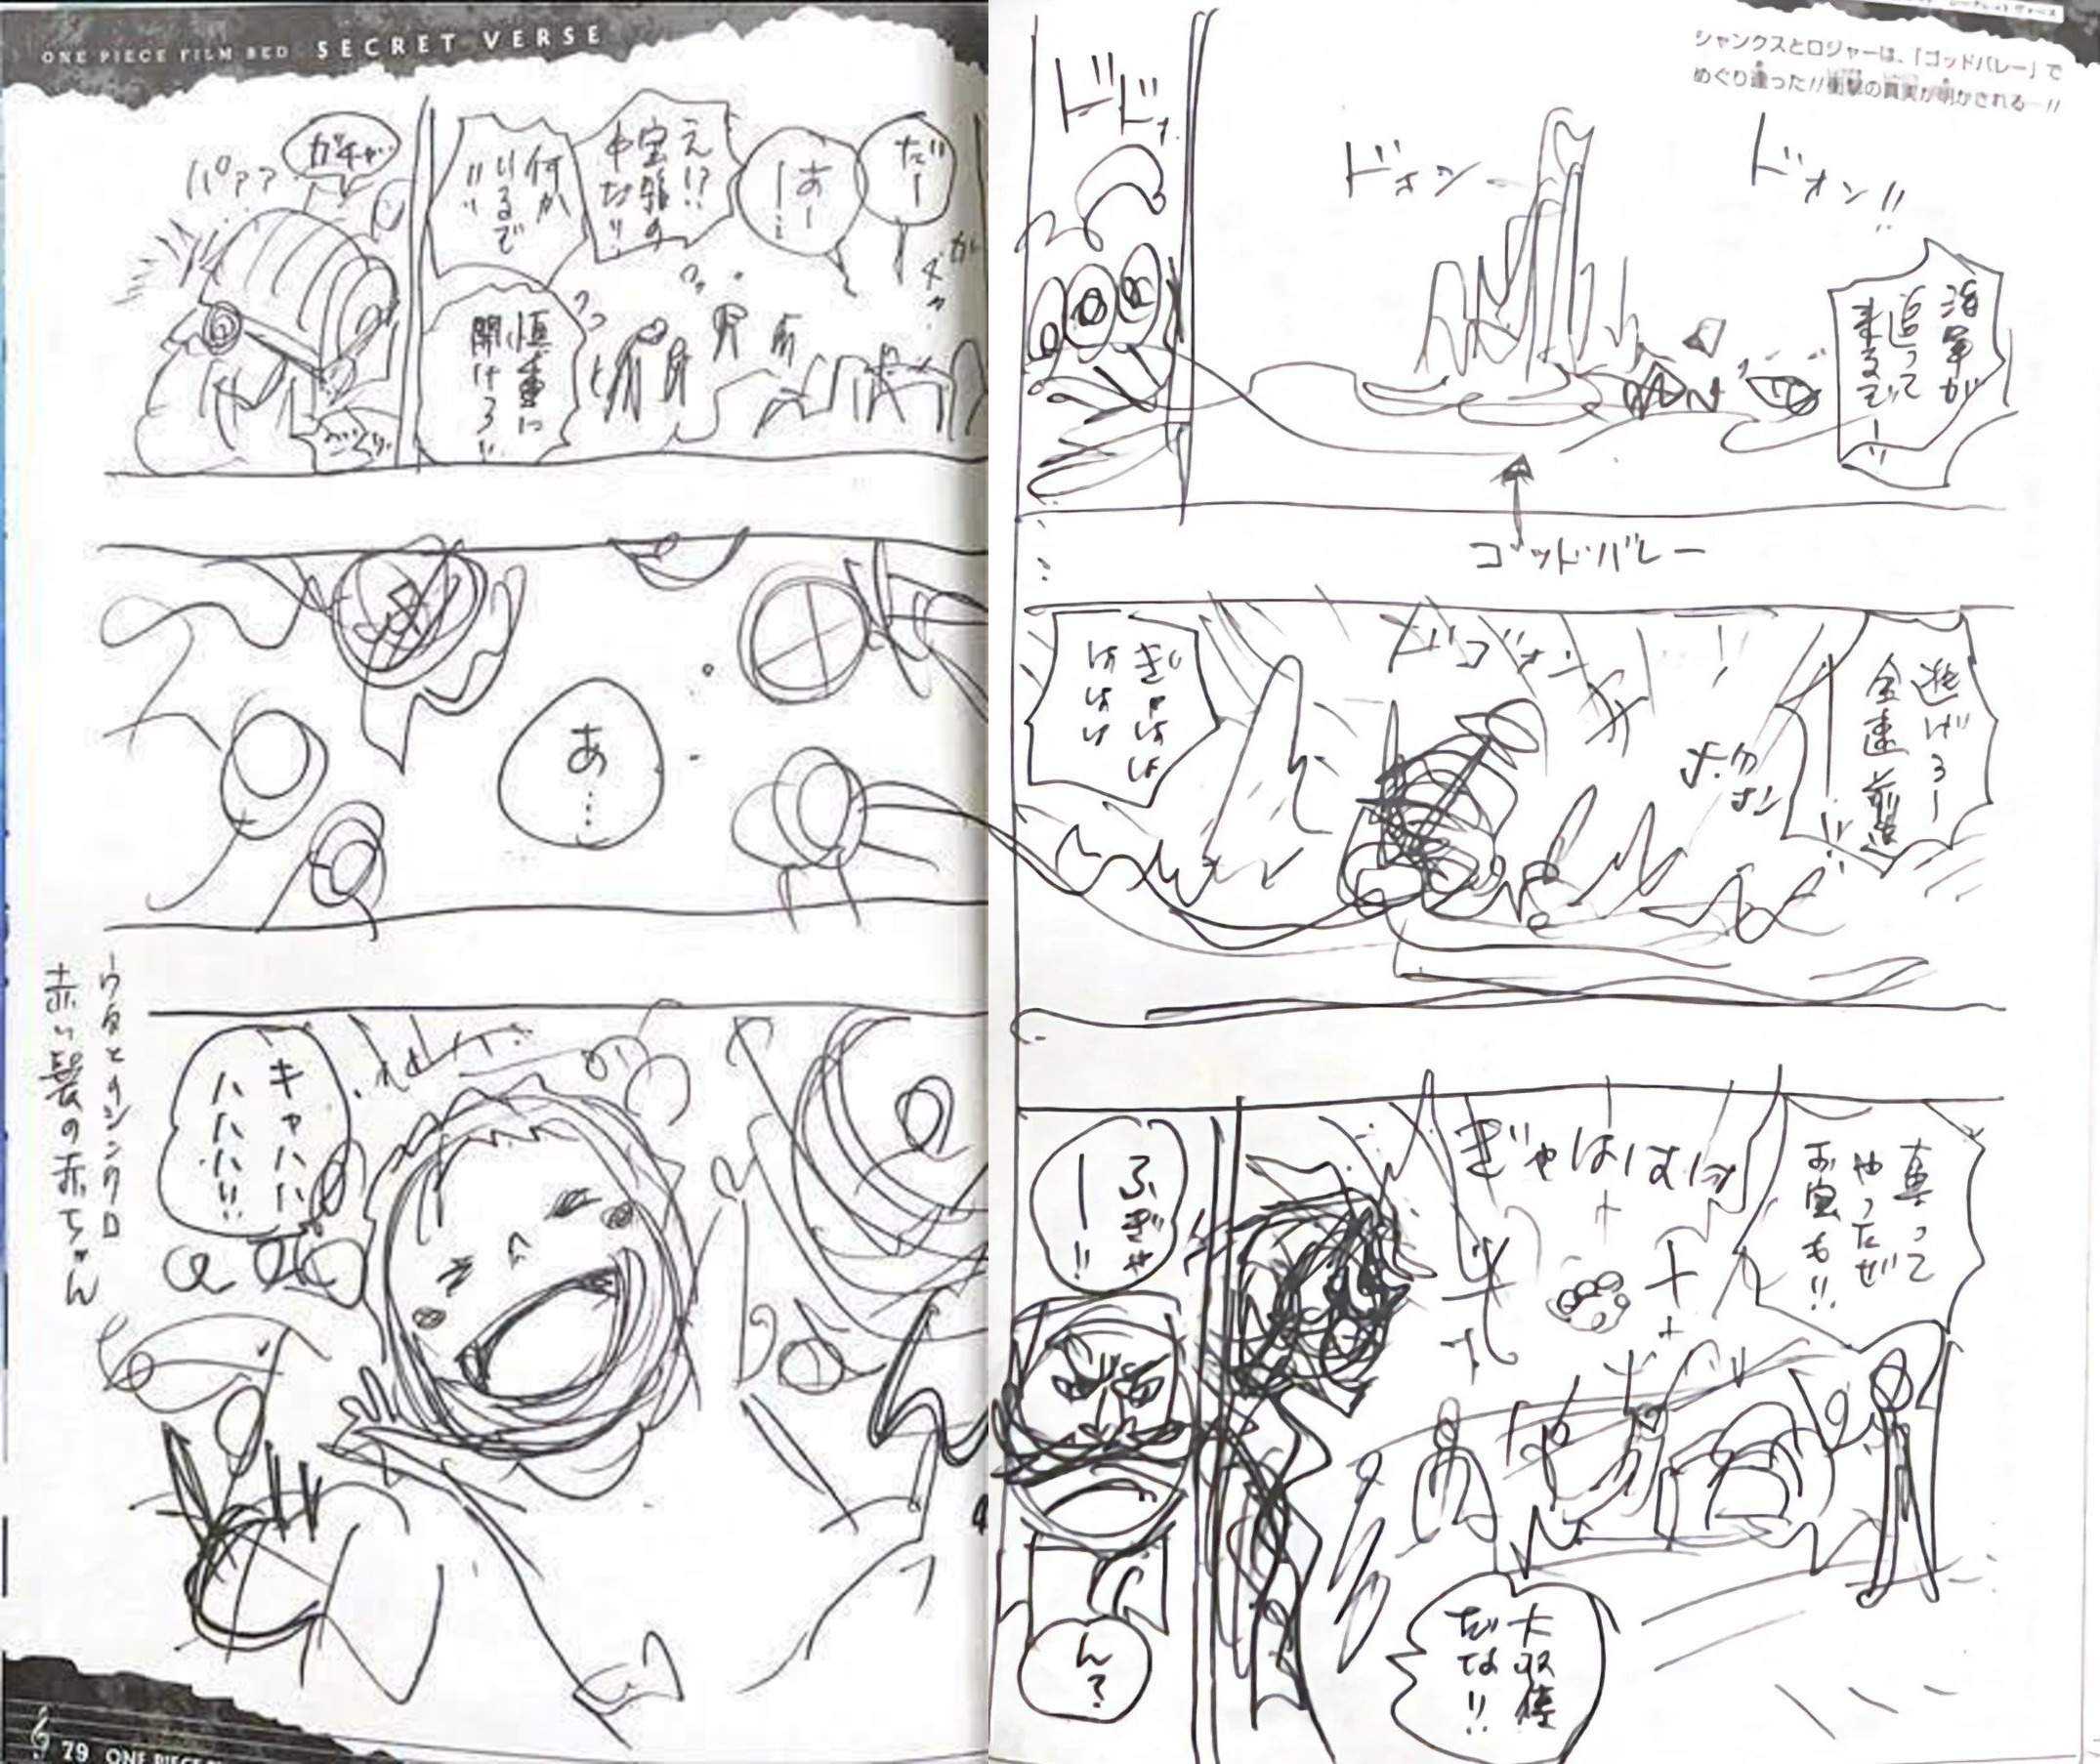 シャンクスとロジャーは、「ゴッドバレー」で
めぐり逢った!!衝撃の真実が明かされる—!!
ドォン!!
ドォン
海軍が
追って
来るぞー!!
ゴッド・バレー
ドドォ
逃げろー
全速前進
ー!!
ドゴォン
ぎゃはは
ははは
真って
やったぜ
お宝も!!
ぎゃはははッ
大収穫
だな!!
ふぎゃ
ー!!
ん?
ONE PIECE FILM RED SECRET VERSE
だー
あー
ー…
え!?
宝箱の
中だ!!
何か
いるぞ
!!
慎重に
開けろ!!
ガチャ
パアア
あ…
キャハハ
ハハハ!!
ウタとのシンクロ
赤い髪の赤ちゃん
79 ONE PIECE